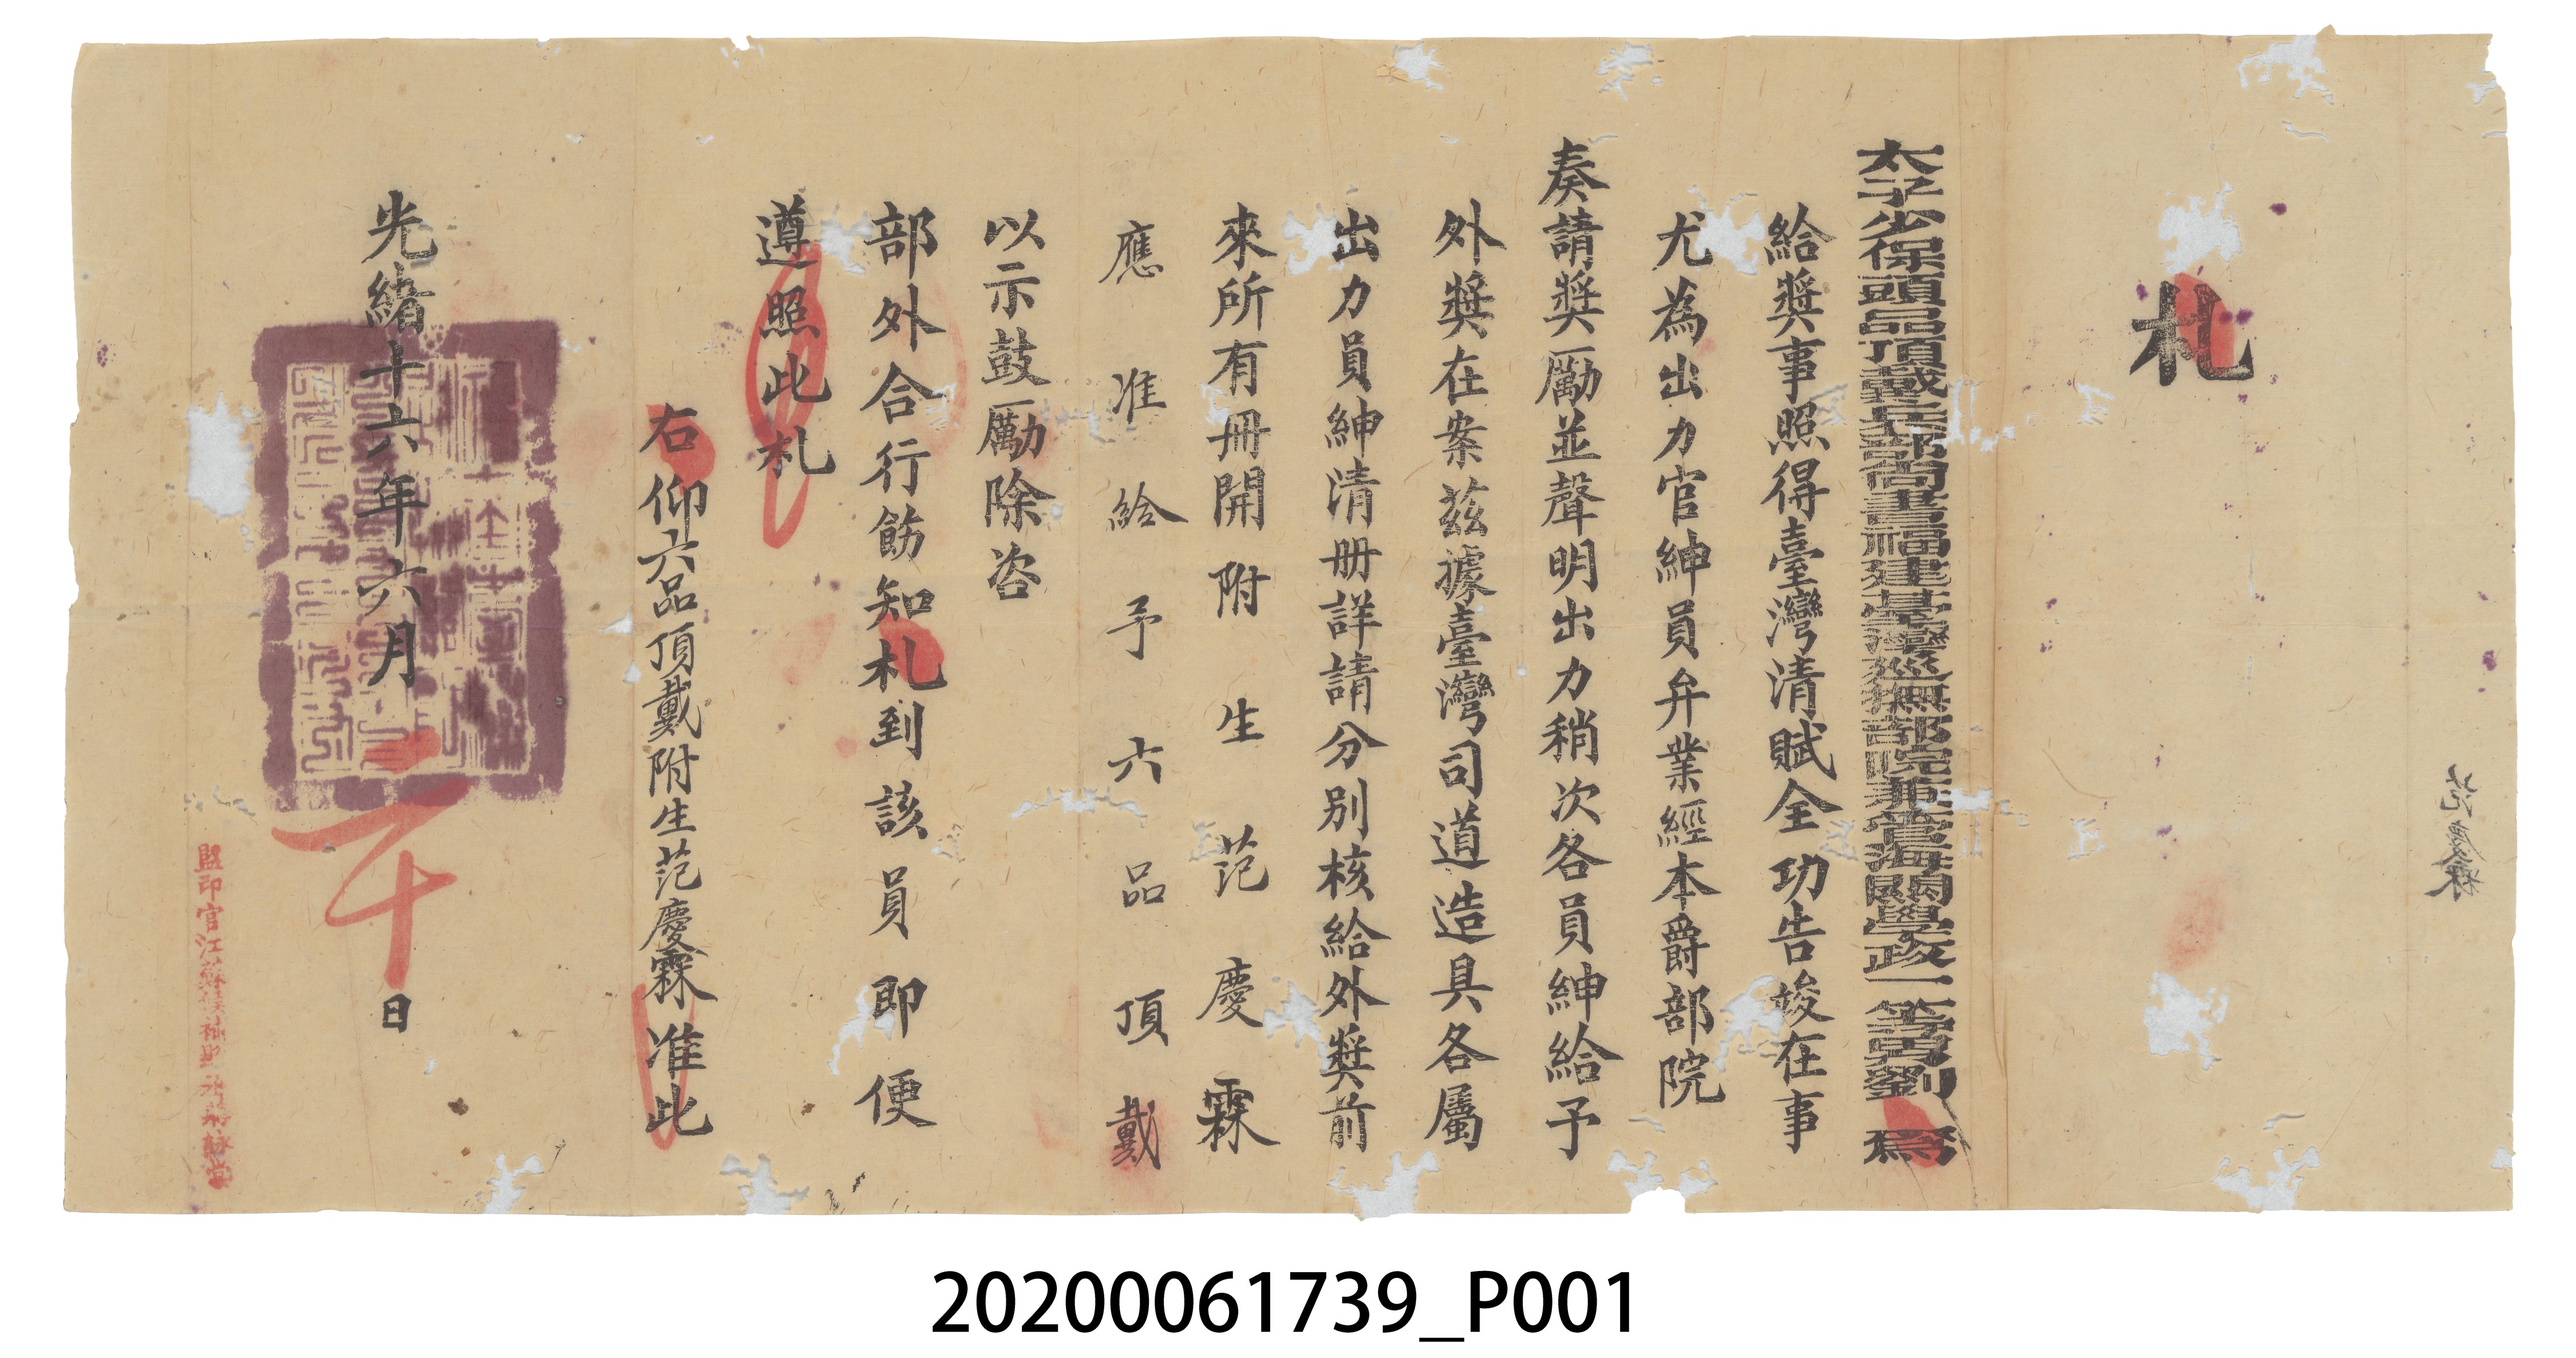 范慶霖
札
太子少保頭品頂戴兵部尚書福建臺灣巡撫部院兼管海關學政一等男劉 為
給獎事照得臺灣清賦全功告竣在事
尤為出力官紳員弁業經本爵部院
奏請獎勵並聲明出力稍次各員紳給予
外獎在案茲據臺灣司道造具各屬
出力員紳清册詳請分別核給外獎前
來所有冊開附生范慶霖
應准給予六品頂戴
以示鼓勵除咨
部外合行飭知札到該員即便
遵照此札
右仰六品頂戴附生范慶霖准此
光緒十六年六月 二十 日
監印官江蘇候補
20200061739_P001